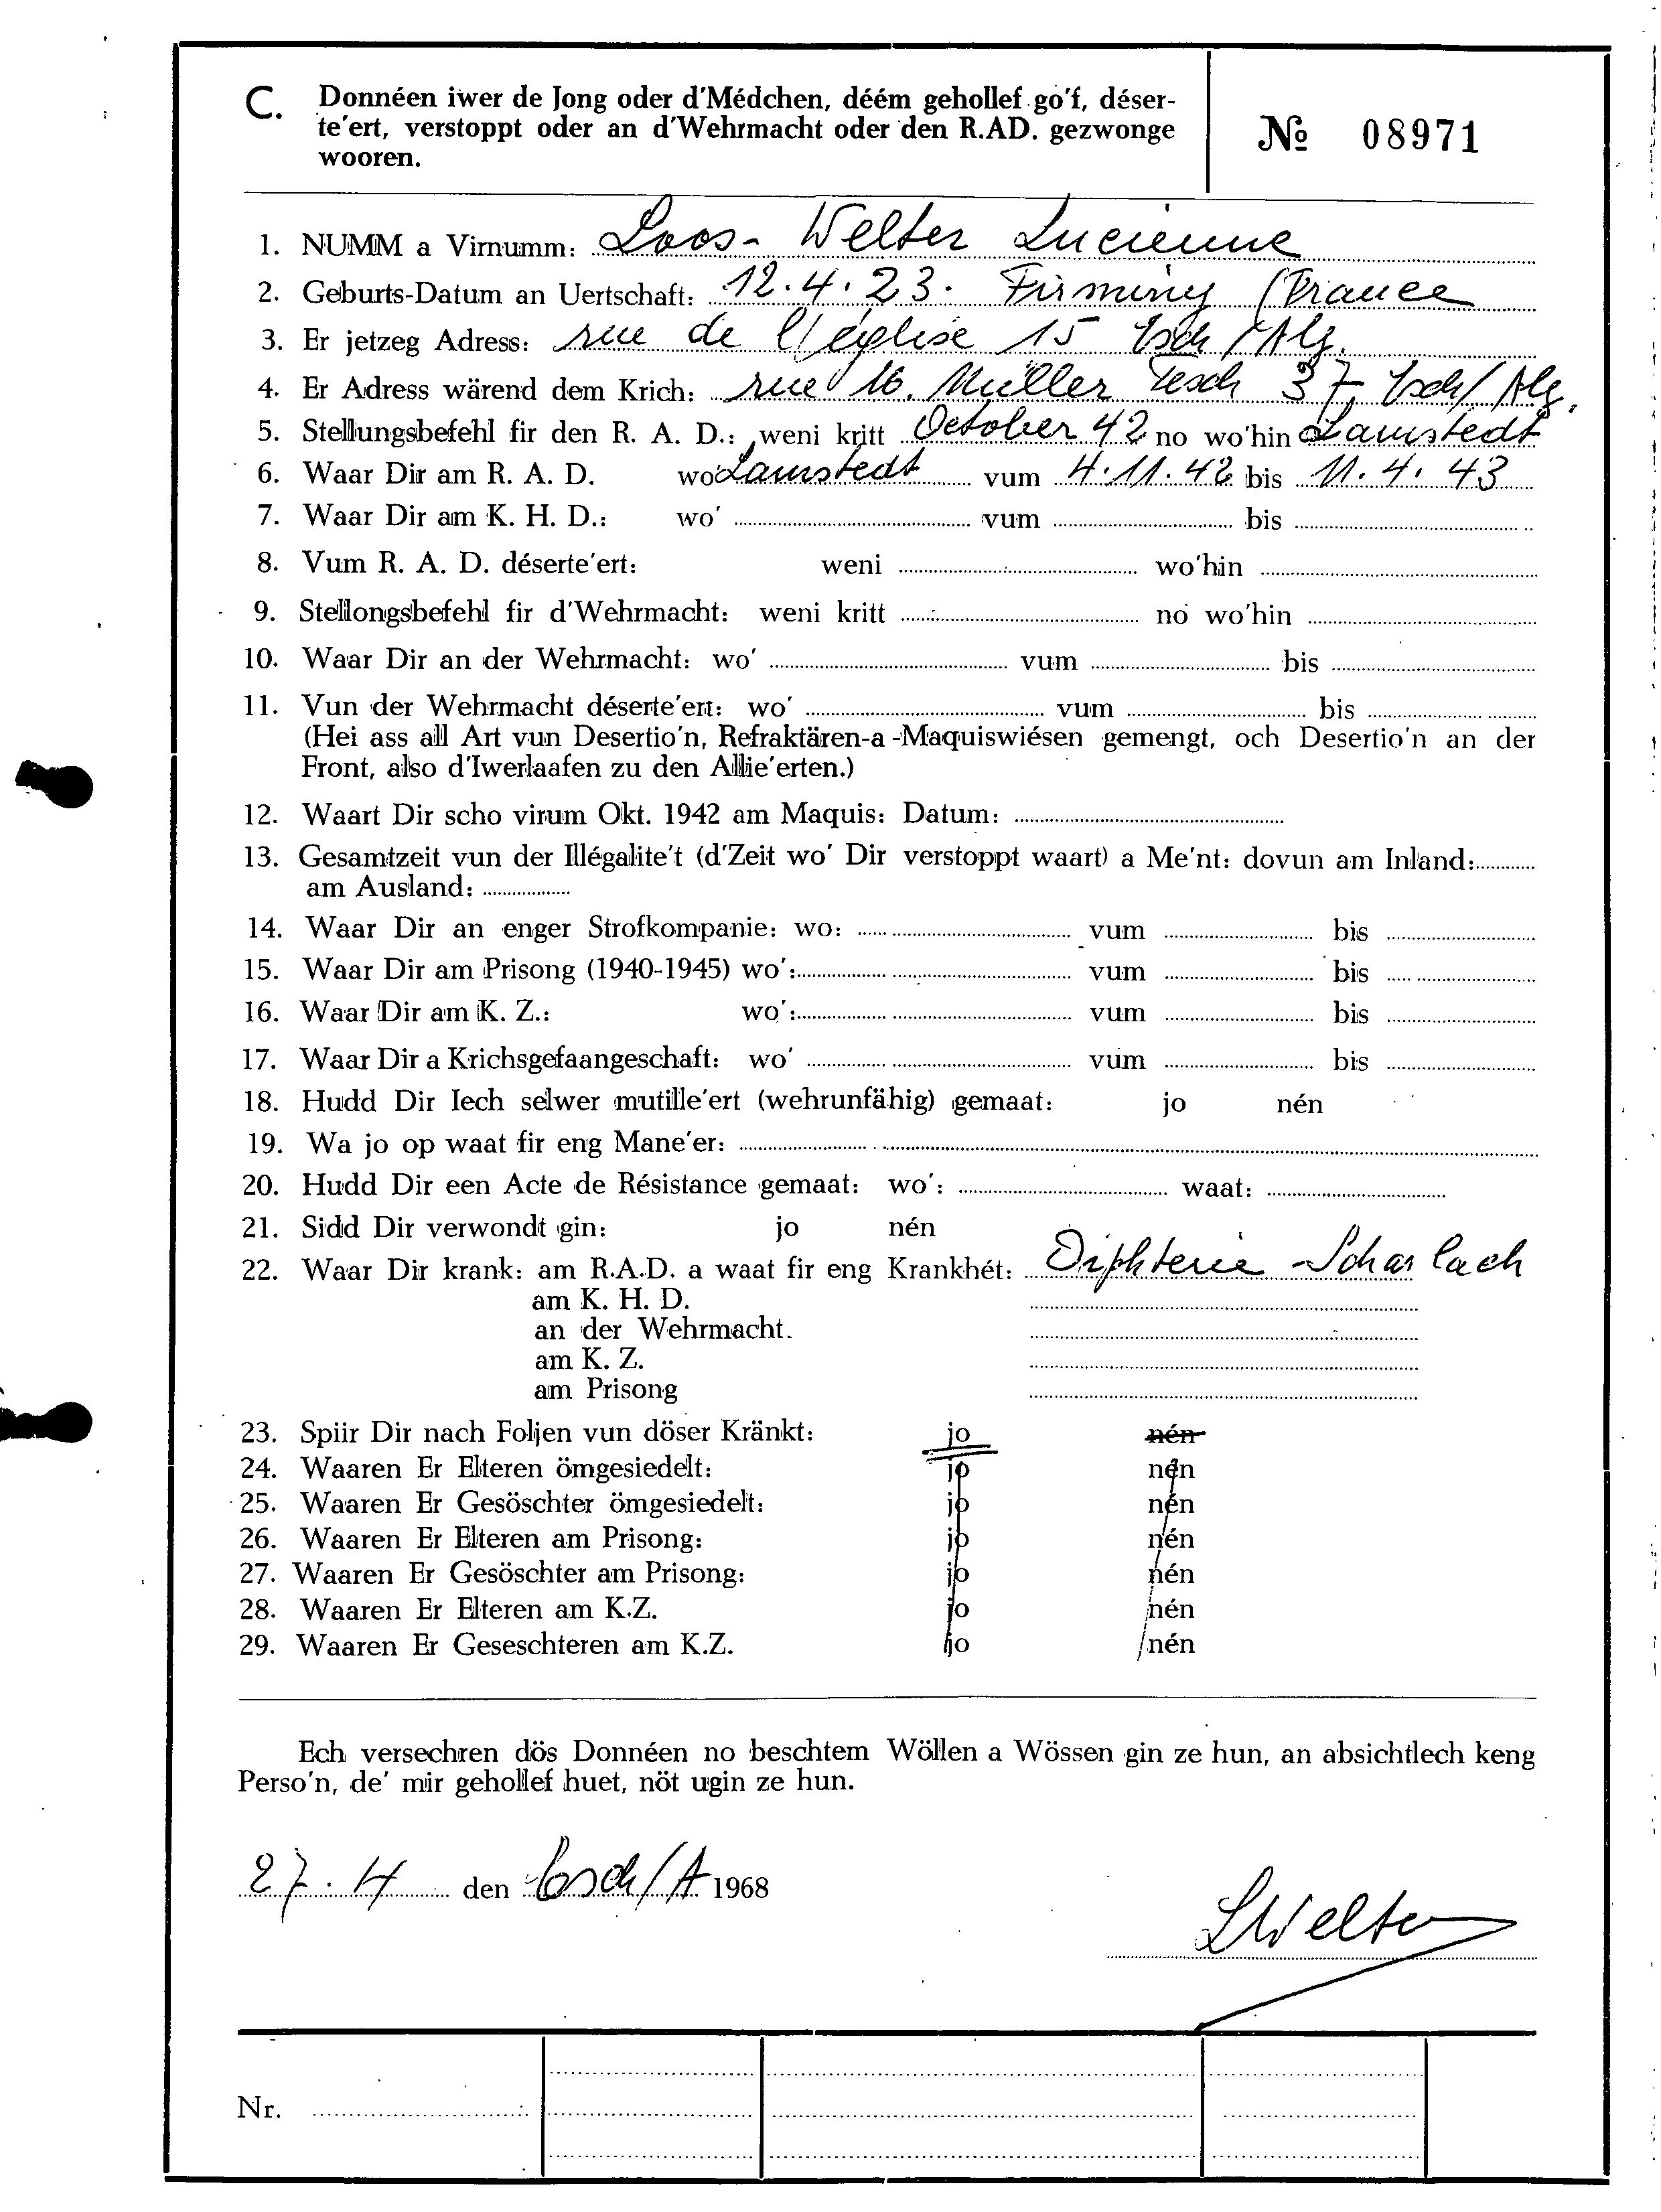 C. Donnéen iwer de Jong oder d'Médchen, déém gehollef go'f, déser-
te'ert, verstoppt oder an d'Wehrmacht oder den R.AD. gezwonge
wooren.
№ 08971
1. NUMM a Virnumm: Loos-Welter Lucienne
2. Geburts-Datum an Uertschaft: 12.4.23. Firminy (France
3. Er jetzeg Adress: rue de l'église 15 Esch/Alz.
4. Er Adress wärend dem Krich: rue M. Müller Tesch 37, Esch/Alz.
5. Stellungsbefehl fir den R. A. D.: weni kritt October 42 no wo'hin Lamstedt
6. Waar Dir am R. A. D. wo Lamstedt vum 4.11.42 bis 11.4.43
7. Waar Dir am K. H. D.: wo' vum bis
8. Vum R. A. D. déserte'ert: weni wo'hin
9. Stellongsbefehl fir d'Wehrmacht: weni kritt no wo'hin
10. Waar Dir an der Wehrmacht: wo' vum bis
11. Vun der Wehrmacht déserte'ert: wo' vum bis
(Hei ass all Art vun Desertio'n, Refraktären-a -Maquiswiésen gemengt, och Desertio'n an der
Front, also d'Iwerlaafen zu den Allie'erten.)
12. Waart Dir scho virum Okt. 1942 am Maquis: Datum:
13. Gesamtzeit vun der Illégalite't (d'Zeit wo' Dir verstoppt waart) a Me'nt: dovun am Inland:
am Ausland:
14. Waar Dir an enger Strofkompanie: wo: vum bis
15. Waar Dir am Prisong (1940-1945) wo': vum bis
16. Waar Dir am K. Z.: wo': vum bis
17. Waar Dir a Krichsgefaangeschaft: wo' vum bis
18. Hudd Dir Iech selwer mutille'ert (wehrunfähig) gemaat: jo nén
19. Wa jo op waat fir eng Mane'er:
20. Hudd Dir een Acte de Résistance gemaat: wo': waat:
21. Sidd Dir verwondt gin: jo nén
22. Waar Dir krank: am R.A.D. a waat fir eng Krankhét: Diphterie - Scharlach
am K. H. D.
an der Wehrmacht.
am K. Z.
am Prisong
23. Spiir Dir nach Foljen vun döser Kränkt: jo nén
24. Waaren Er Elteren ömgesiedelt: jo nén
25. Waaren Er Gesöschter ömgesiedelt: jo nén
26. Waaren Er Elteren am Prisong: jo nén
27. Waaren Er Gesöschter am Prisong: jo nén
28. Waaren Er Elteren am K.Z. jo nén
29. Waaren Er Geseschteren am K.Z. jo nén
Ech versechren dös Donnéen no beschtem Wöllen a Wössen gin ze hun, an absichtlech keng
Perso'n, de' mir gehollef huet, nöt ugin ze hun.
27.4 den Esch/A 1968
LWelter
Nr.